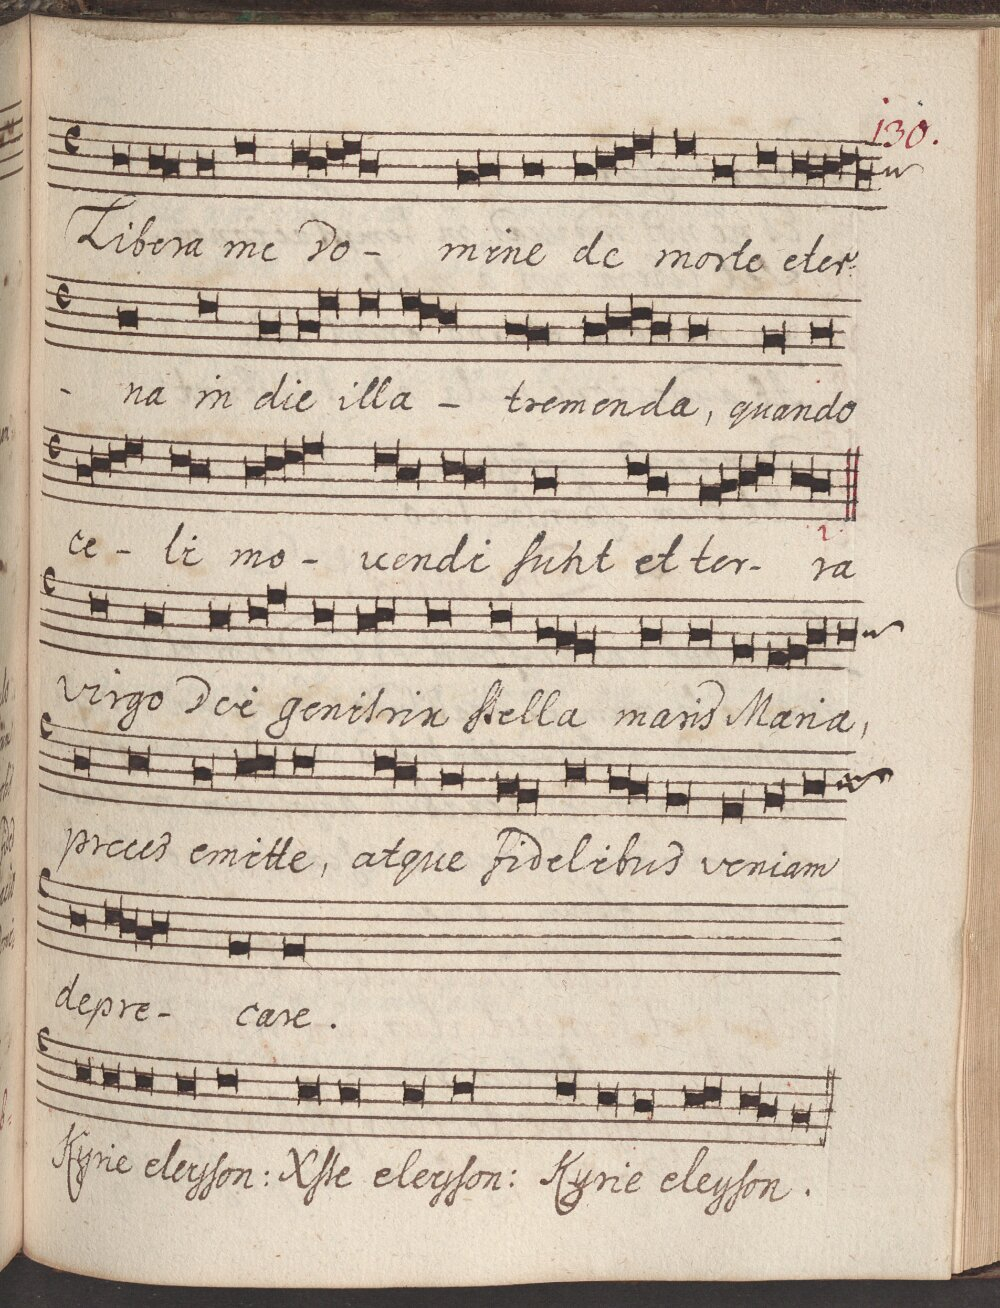 130.
Libera me Do- mine de morte eter-
- na in die illa - tremenda, quando
ce - li mo - uendi sunt et ter- ra
Virgo Dei genitrix stella maris Maria,
preces emitte, atque fidelibus veniam
depre- care.
Kyrie eleyson: Xste eleyson: Kyrie eleyson.